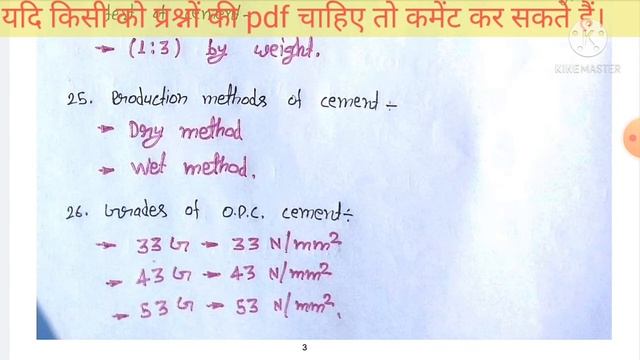 यदि किसी को प्रश्नों की pdf चाहिए तो कमेंट कर सकते हैं।
→ (1:3) by weight.
KINEMASTER
25. Production methods of cement ÷
→ Dry method
→ Wet method.
26. Grades of O.P.C. cement ÷
→ 33 G → 33 N/mm²
→ 43 G → 43 N/mm²
→ 53 G → 53 N/mm².
3